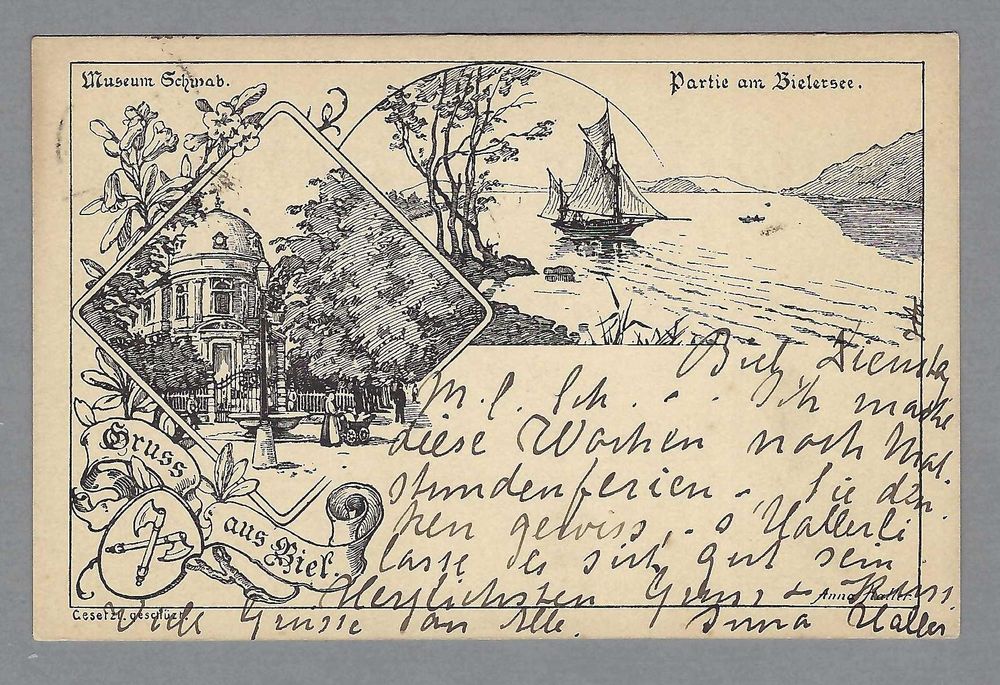 Museum Schwab.
Partie am Bielersee.
Biel Dienstag
M. l. Sch. - - Ich mache
diese Wochen noch Mal-
stundenferien - Sie den-
ken gewiss, s'Hallerli
lasse es sich gut sein
Herzlichsten Gruss & Kuss.
Viele Grüsse an Alle. Anna Haller
Gruss
aus Biel.
Anna Haller.
Gesetzl. geschützt.